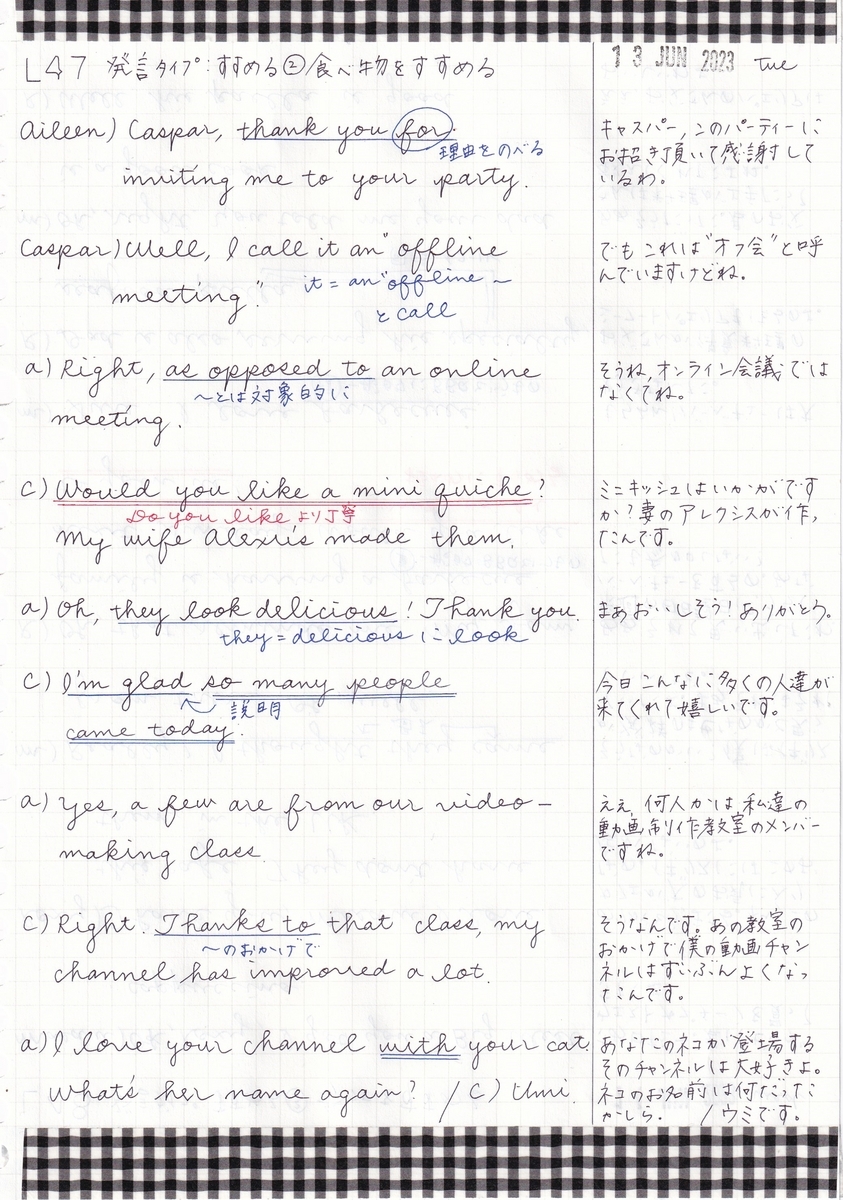 L47 発言タイプ:すすめる②/食べ物をすすめる
13 JUN 2023 Tue
Aileen) Caspar, thank you for
理由をのべる
inviting me to your party.
キャスパー,このパーティーに
お招き頂いて感謝して
いるわ。
Caspar) Well, I call it an "offline
meeting."
it = an "offline ~
と call
でもこれは"オフ会"と呼
んでいますけどね。
a) Right, as opposed to an online
~とは対象的に
meeting.
そうね,オンライン会議では
なくてね。
c) Would you like a mini quiche?
Do you like より丁寧
My wife Alexis made them.
ミニキッシュはいかがです
か?妻のアレクシスが作っ
たんです。
a) Oh, they look delicious! Thank you.
they = delicious に look
まあおいしそう!ありがとう。
c) I'm glad so many people
説明
came today.
今日こんなに多くの人達が
来てくれて嬉しいです。
a) Yes, a few are from our video-
making class.
ええ,何人かは,私達の
動画制作教室のメンバー
ですね。
c) Right. Thanks to that class, my
~のおかげで
channel has improved a lot.
そうなんです。あの教室の
おかげで僕の動画チャン
ネルはずいぶんよくなっ
たんです。
a) I love your channel with your cat.
What's her name again? / c) Umi.
あなたのネコが登場する
そのチャンネルは大好きよ。
ネコのお名前は何だった
かしら. /ウミです。